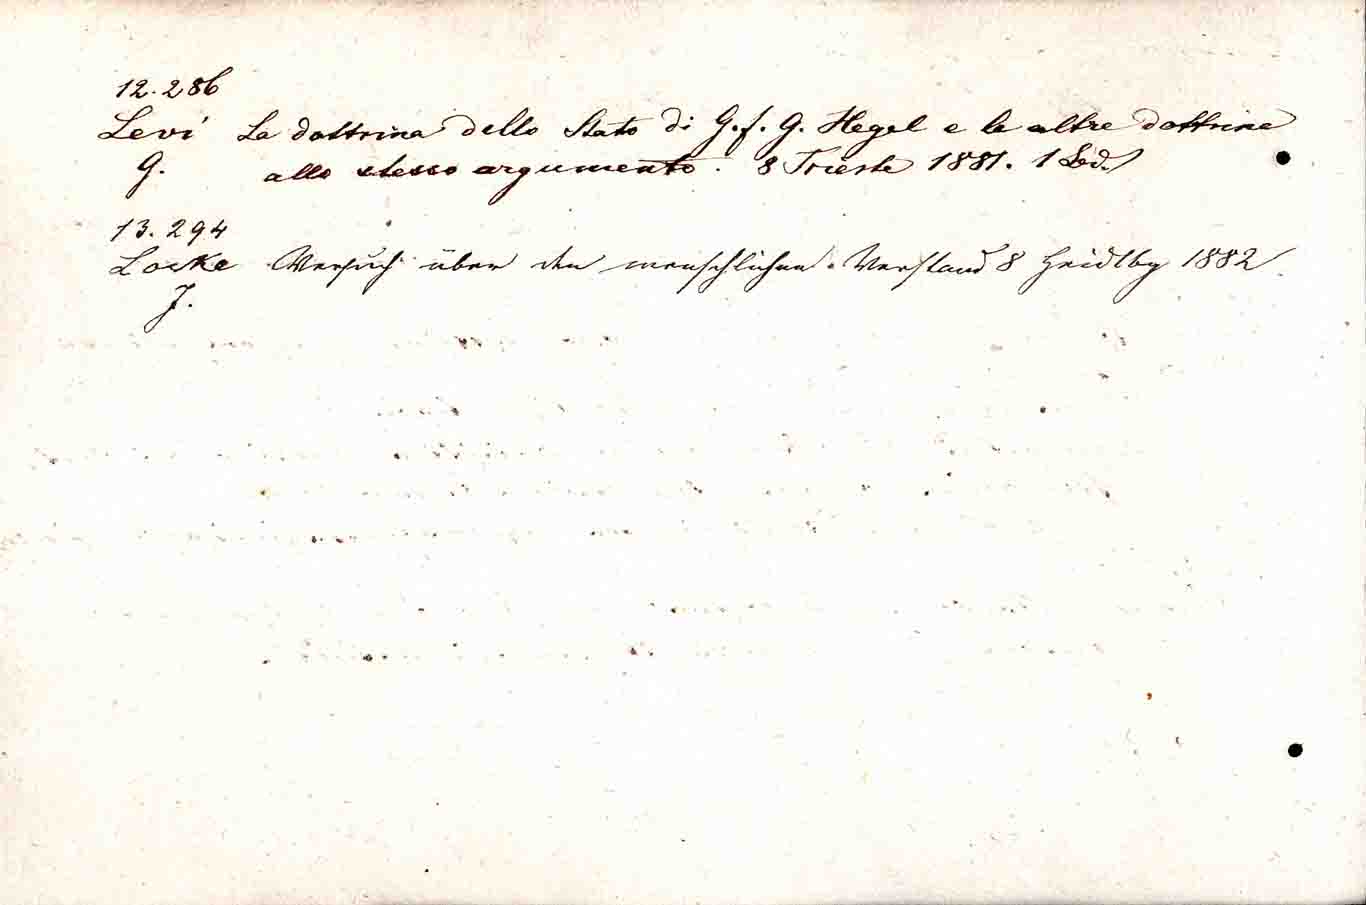 12.286
Levi La dottrina dello Stato di G. f. G. Hegel e le altre dottrine
G. allo stesso argumento. 8 Trieste 1881. 1 Bd.
13.294
Locke Versuch über den menschlichen Verstand 8 Heidlbg 1882
J.